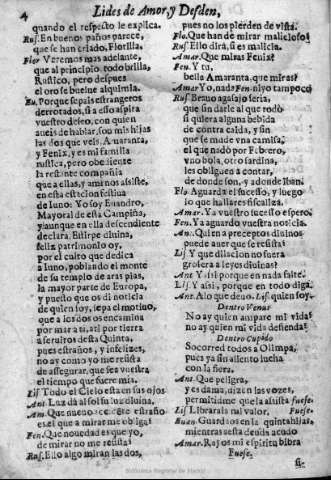 4 Lides de Amor, y Desden,
quando el respecto le explica.
Rus. En buenos pañales parece,
que se han criado, Florilla.
Flor. Veremos mas adelante,
que al principio, todo brilla,
Rustico, pero despues
el oro se buelue alquimia.
Eu. Porque sepais estrangeros
derrotados, si a esso aspira
vuestro desseo, con quien
aueis de hablar, son mis hijas
las dos que veis, Amaranta,
y Fenix, y es mi familia
rustica, pero obediente
la restante compañia
que a ellas, y a mi nos assiste,
en esta estacion festiua
de Iuno: Yo soy Euandro,
Mayoral de esta Campiña,
y aunque en ella descendiente
declara, Estirpe diuina,
feliz patrimonio oy,
por el culto que dedica
a Iuno, poblando el monte
de su templo de aras pias,
la mayor parte de Europa,
y puesto que os di noticia
de quien soy, sepa el motiuo,
que a los dos os encamina
por mar a ti, a ti por tierra
a seruiros desta Quinta,
pues estraños, y infelizes,
no ay como yo me resista
de assegurar, que sea vuestra
el tiempo que fuere mia.
Lis. Todo el Cielo està en sus ojos
Ant. Luz dà al sol su luz diuina.
Am. Que nueuo este estraño
es el que a mirar me obliga?
Fen. Que nouedad es que yo,
de mirar no me resista?
Rus. Ello algo miran las dos,
pues no los pierden de vista.
Flo. Que han de mirar malicioso?
Rus. Ello dirà, si es malicia.
Amar. Que miras Fenix?
Fen. Y tu,
bella Amaranta, que miras?
Amar. Yo, nada. Fen. ni yo tampoco
Rus. Brauo agasajo seria,
que sin darle al que rodò
si quiera alguna bebida
de contra caida, y sin
que se mude vna camisa,
el que nadò por Febrero,
vno bola, otro sardina,
les obliguen a contar,
de donde son, y adonde iban.
Flo. Aguarda el sucesso, y luego
lo que hallares fiscaliza.
Amar. Ya vuestro sucesso espero.
Fen. Ya aguardo vuestra noticia.
Ant. Quien a preceptos diuinos
puede auer que se resista?
Lis. Y que dilacion no fuera
grosera a leyes diuinas?
Ant. Y assi porque en nada falte.
Lis. Y assi, porque en todo diga.
Ant. A lo que deuo. Lis. quien soy.
Dentro Venus
No ay quien ampare mi vida?
no ay quien mi vida defienda?
Dentro Cupido
Socorred todos a Olimpa,
pues ya sin aliento lucha
con la fiera.
Ant. Que peligra,
y es dama, dizen las vozes,
permitidme que la assista fuese.
Lis. Librarala mi valor. Fuese.
Euan. Guardaos en la quintabillas,
mientras se sabe deste acudo
Amar. Rayos mi espiritu bibra
Fuese.
Biblioteca Regional de Madrid